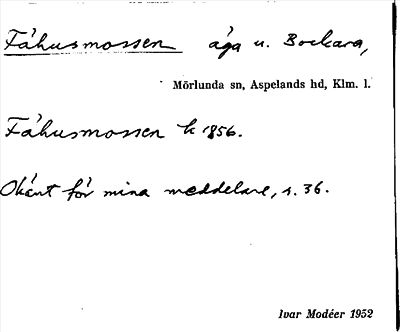 Fähusmossen äga u. Bockara,
Mörlunda sn, Aspelands hd, Klm. l.
Fähusmossen k 1856.
Okänt för mina meddelare, s. 36.
Ivar Modéer 1952